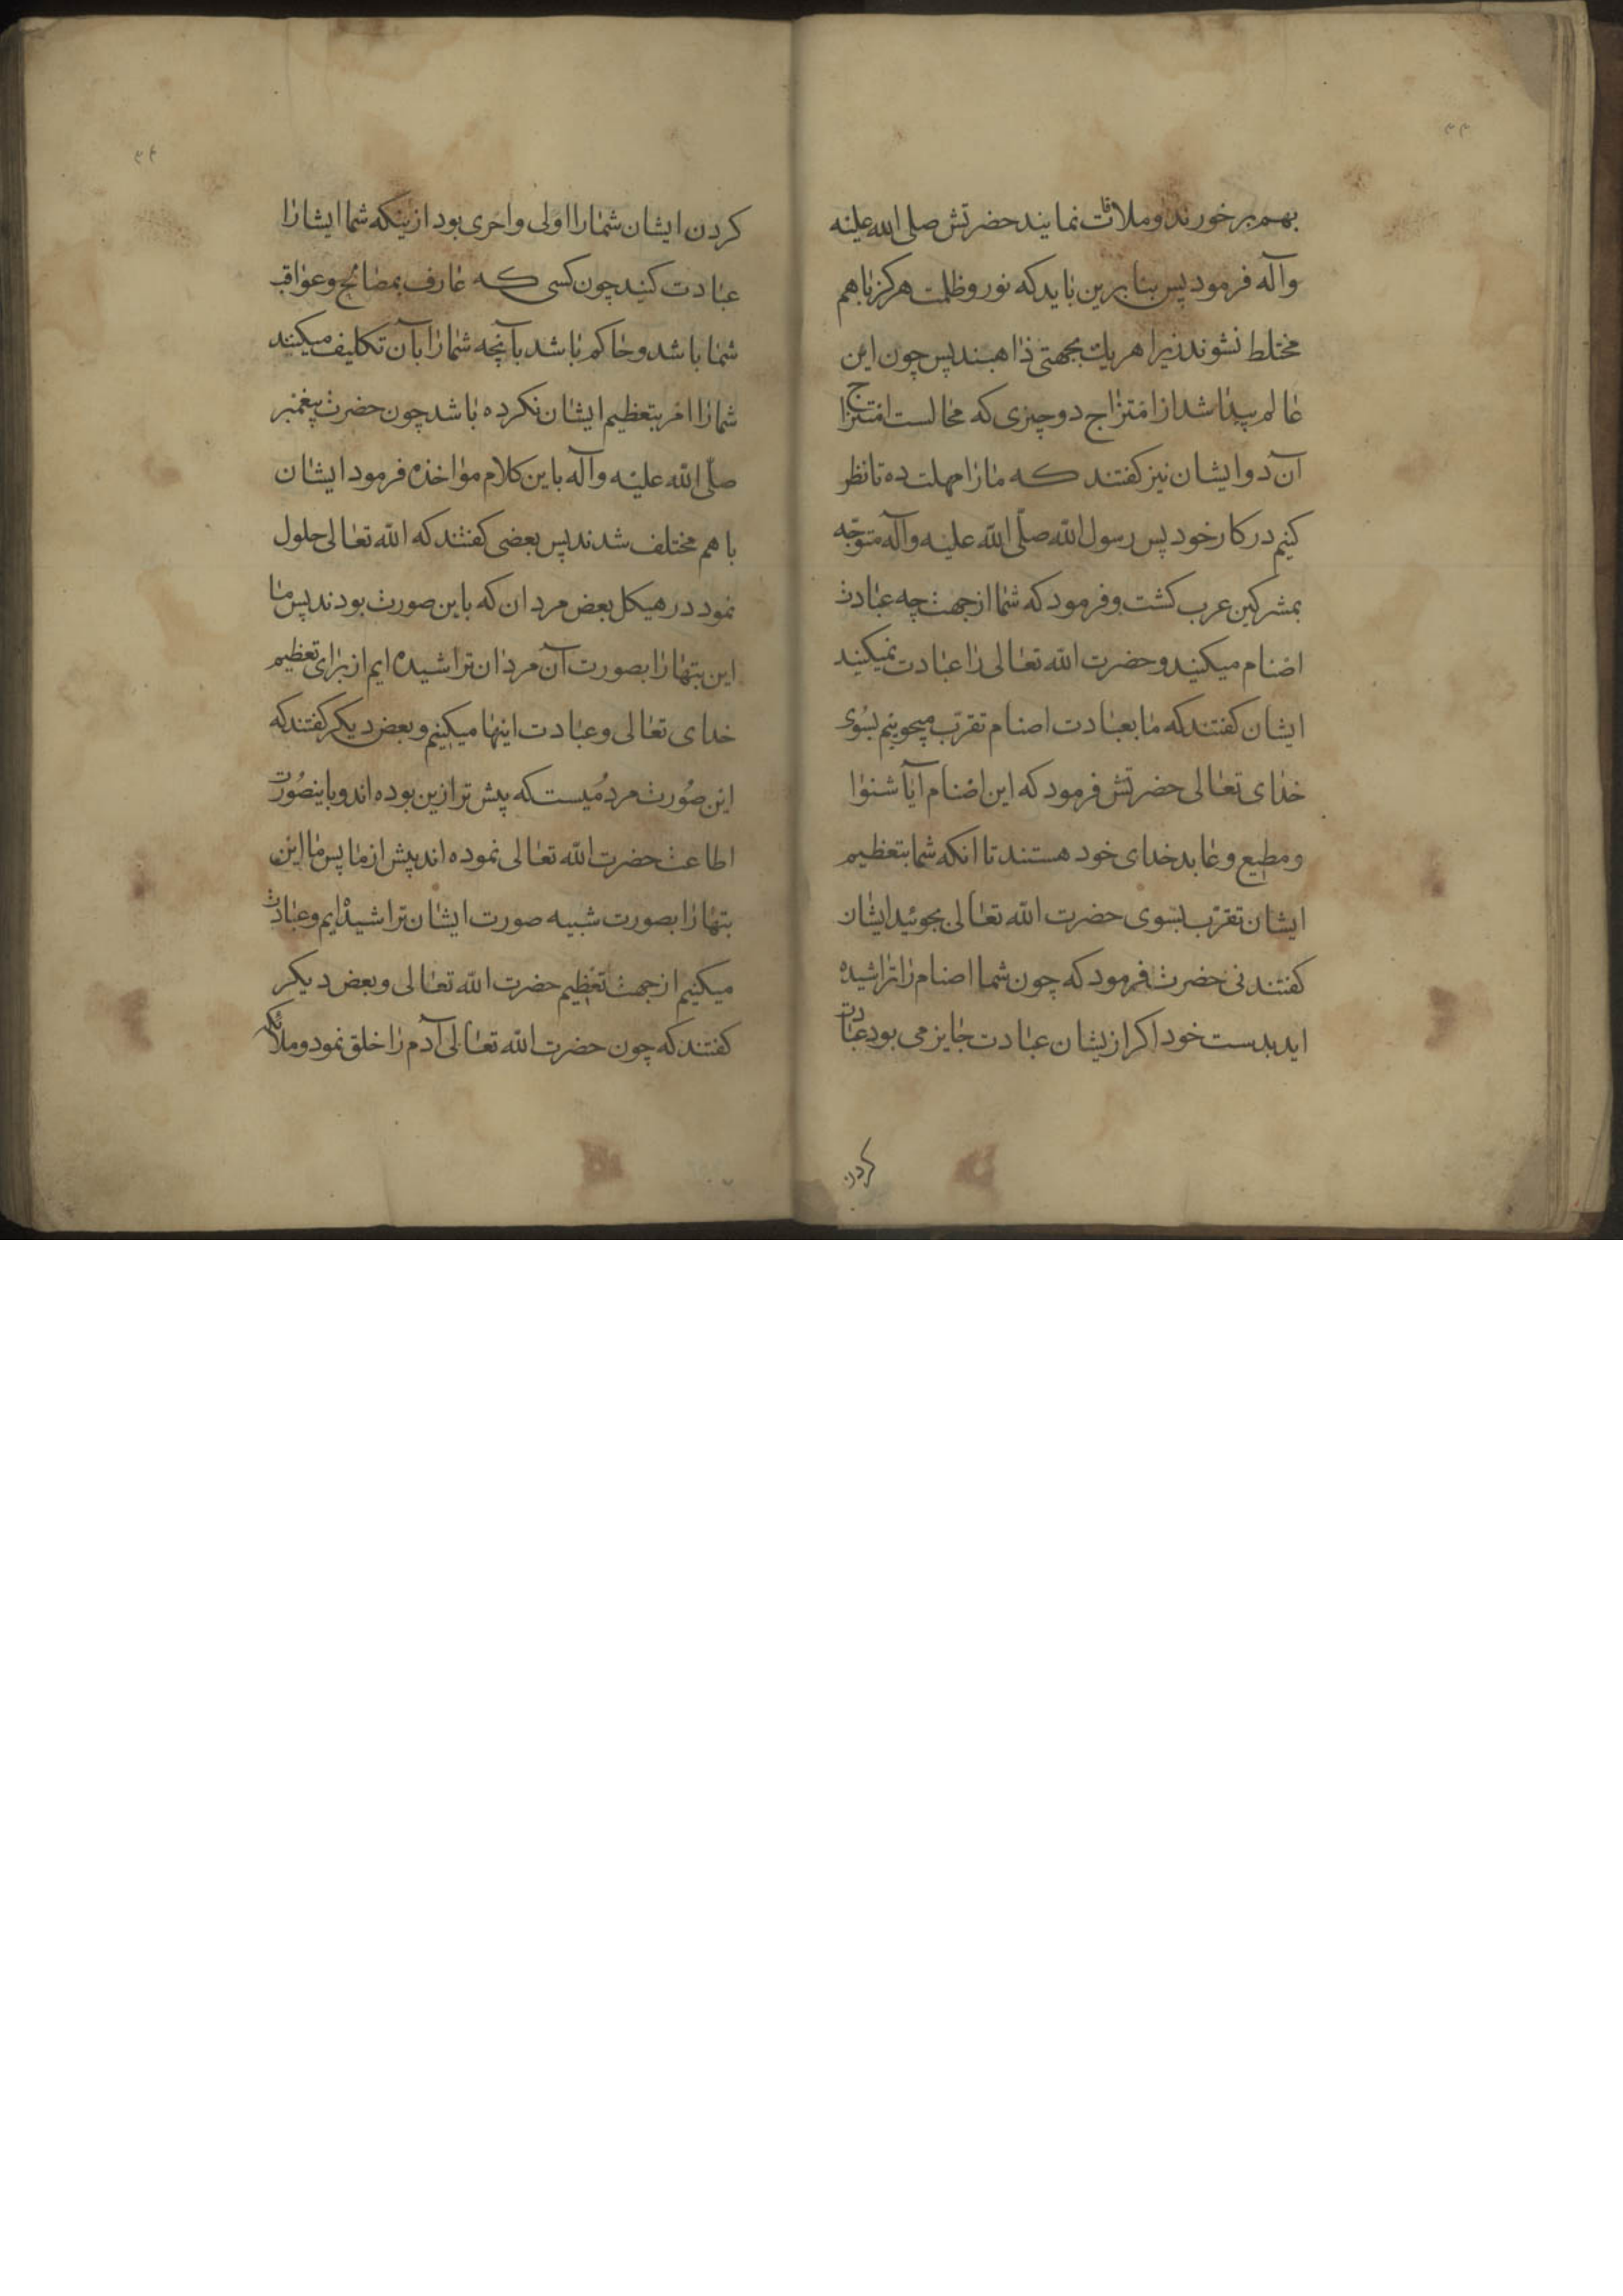 بهم برخورند و ملاقات نمایند حضرتش صلی الله علیه
وآله فرمود پس بنابرین باید که نور و ظلمت هرکز باهم
مختلط نشوند زیرا هریك بجهتی ذاهبند پس چون این
عالم پیدا شد از امتزاج دو چیزی که محالست امتزاج
آن دو ایشان نیز کفتند که مارا مهلت ده تا نظر
کنیم در کار خود پس رسول الله صلّی الله علیه وآله متوجّه
بمشرکین عرب کشت و فرمود که شما از جهت چه عبادت
اصنام میکنید و حضرت الله تعالی را عبادت نمیکنید
ایشان کفتند که ما بعبادت اصنام تقرّب میجوییم بسوی
خدای تعالی حضرتش فرمود که این اصنام آیا شنوا
و مطیع و عابد خدای خود هستند تا انکه شما بتعظیم
ایشان تقرّب بسوی حضرت الله تعالی بجوئید ایشان
کفتند نی حضرت فرمود که چون شما اصنام را تراشیده
اید بدست خود اکر ازیشان عبادت جایز می بود عبادت
کردن
کردن ایشان شمارا اولی و احری بود ازینکه شما ایشانرا
عبادت کنید چون کسی که عارف بمصالح و عواقب
شما باشد و حاکم باشد بآنچه شمارا بآن تکلیف میکنند
شمارا امر بتعظیم ایشان نکرده باشد چون حضرت پیغمبر
صلّی الله علیه وآله باین کلام مواخذه فرمود ایشان
باهم مختلف شدند پس بعضی کفتند که الله تعالی حلول
نمود در هیکل بعض مردان که باین صورت بودند پس ما
این بتهارا بصورت آن مردان تراشیده ایم از برای تعظیم
خدای تعالی و عبادت اینها میکنیم و بعض دیکر کفتند که
این صُورت مردمُیست که پیش تر ازین بوده اند و باینصُورت
اطاعت حضرت الله تعالی نموده اند پیش از ما پس ما این
بتهارا بصورت شبیه صورت ایشان تراشیده ایم و عبادت
میکنیم از جهت تعظیم حضرت الله تعالی و بعض دیکر
کفتند که چون حضرت الله تعالی آدم را خلق نمود و ملائکه